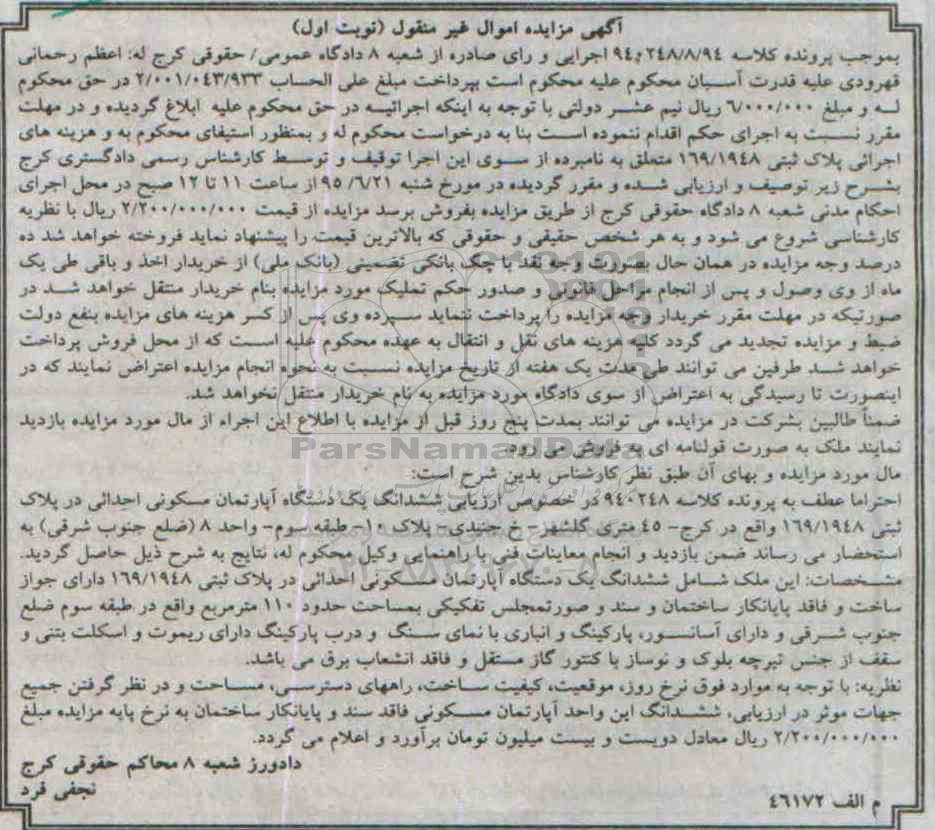 آگهی مزایده اموال غیر منقول (نوبت اول)
بموجب پرونده کلاسه ۲۴۸/۸/۹۴ج۹۴ اجرایی و رای صادره از شعبه ۸ دادگاه عمومی/ حقوقی کرج له: اعظم رحمانی
قهرودی علیه قدرت آسبان محکوم علیه محکوم است بپرداخت مبلغ علی الحساب ۲/۰۰۱/۰۴۳/۹۳۳ در حق محکوم
له و مبلغ ۶/۰۰۰/۰۰۰ ریال نیم عشر دولتی با توجه به اینکه اجرائیه در حق محکوم علیه ابلاغ گردیده و در مهلت
مقرر نسبت به اجرای حکم اقدام ننموده است بنا به درخواست محکوم له و بمنظور استیفای محکوم به و هزینه های
اجرائی پلاک ثبتی ۱۶۹/۱۹۴۸ متعلق به نامبرده از سوی این اجرا توقیف و توسط کارشناس رسمی دادگستری کرج
بشرح زیر توصیف و ارزیابی شده و مقرر گردیده در مورخ شنبه ۹۵/۶/۲۱ از ساعت ۱۱ تا ۱۲ صبح در محل اجرای
احکام مدنی شعبه ۸ دادگاه حقوقی کرج از طریق مزایده بفروش برسد مزایده از قیمت ۲/۲۰۰/۰۰۰/۰۰۰ ریال با نظریه
کارشناسی شروع می شود و به هر شخص حقیقی و حقوقی که بالاترین قیمت را پیشنهاد نماید فروخته خواهد شد ده
درصد وجه مزایده در همان حال بصورت وجه نقد یا چک بانکی تضمینی (بانک ملی) از خریدار اخذ و باقی طی یک
ماه از وی وصول و پس از انجام مراحل قانونی و صدور حکم تملیک مورد مزایده بنام خریدار منتقل خواهد شد در
صورتیکه در مهلت مقرر خریدار وجه مزایده را پرداخت ننماید سپرده وی پس از کسر هزینه های مزایده بنفع دولت
ضبط و مزایده تجدید می گردد کلیه هزینه های نقل و انتقال به عهده محکوم علیه است که از محل فروش پرداخت
خواهد شد طرفین می توانند طی مدت یک هفته از تاریخ مزایده نسبت به نحوه انجام مزایده اعتراض نمایند که در
اینصورت تا رسیدگی به اعتراض از سوی دادگاه مورد مزایده به نام خریدار منتقل نخواهد شد.
ضمناً طالبین بشرکت در مزایده می توانند بمدت پنج روز قبل از مزایده با اطلاع این اجراء از مال مورد مزایده بازدید
نمایند ملک به صورت قولنامه ای به فروش می رود.
ParsNamadData
مال مورد مزایده و بهای آن طبق نظر کارشناس بدین شرح است:
احتراما عطف به پرونده کلاسه ۹۴۰۲۴۸ در خصوص ارزیابی ششدانگ یک دستگاه آپارتمان مسکونی احداثی در پلاک
ثبتی ۱۶۹/۱۹۴۸ واقع در کرج- ۴۵ متری گلشهر- خ جنیدی- پلاک ۱۰- طبقه سوم- واحد ۸ (ضلع جنوب شرقی) به
استحضار می رساند ضمن بازدید و انجام معاینات فنی با راهنمایی وکیل محکوم له، نتایج به شرح ذیل حاصل گردید.
مشخصات: این ملک شامل ششدانگ یک دستگاه آپارتمان مسکونی احداثی در پلاک ثبتی ۱۶۹/۱۹۴۸ دارای جواز
ساخت و فاقد پایانکار ساختمان و سند و صورتمجلس تفکیکی بمساحت حدود ۱۱۰ مترمربع واقع در طبقه سوم ضلع
جنوب شرقی و دارای آسانسور، پارکینگ و انباری با نمای سنگ و درب پارکینگ دارای ریموت و اسکلت بتنی و
سقف از جنس تیرچه بلوک و نوساز با کنتور گاز مستقل و فاقد انشعاب برق می باشد.
نظریه: با توجه به موارد فوق نرخ روز، موقعیت، کیفیت ساخت، راههای دسترسی، مساحت و در نظر گرفتن جمیع
جهات موثر در ارزیابی، ششدانگ این واحد آپارتمان مسکونی فاقد سند و پایانکار ساختمان به نرخ پایه مزایده مبلغ
۲/۲۰۰/۰۰۰/۰۰۰ ریال معادل دویست و بیست میلیون تومان برآورد و اعلام می گردد.
دادورز شعبه ۸ محاکم حقوقی کرج
نجفی فرد
م الف ۴۶۱۷۲